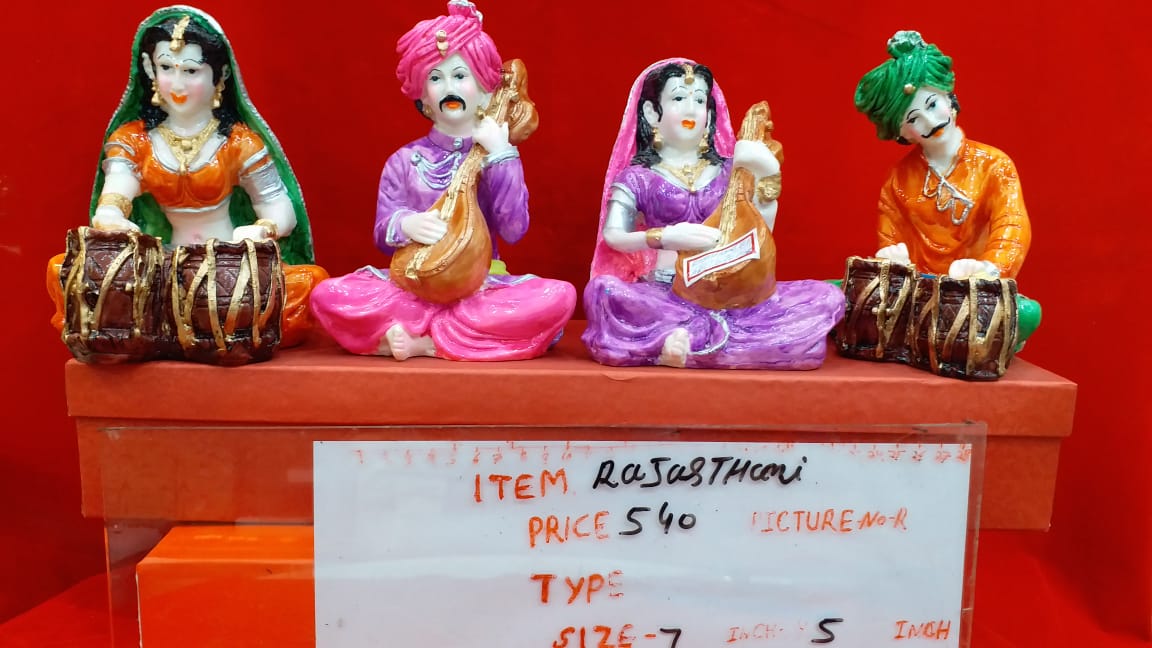 ITEM RaJasTHani
PRICE 540 PICTURE-No-R
TYPE
SIZE-7 INCH- 5 INCH